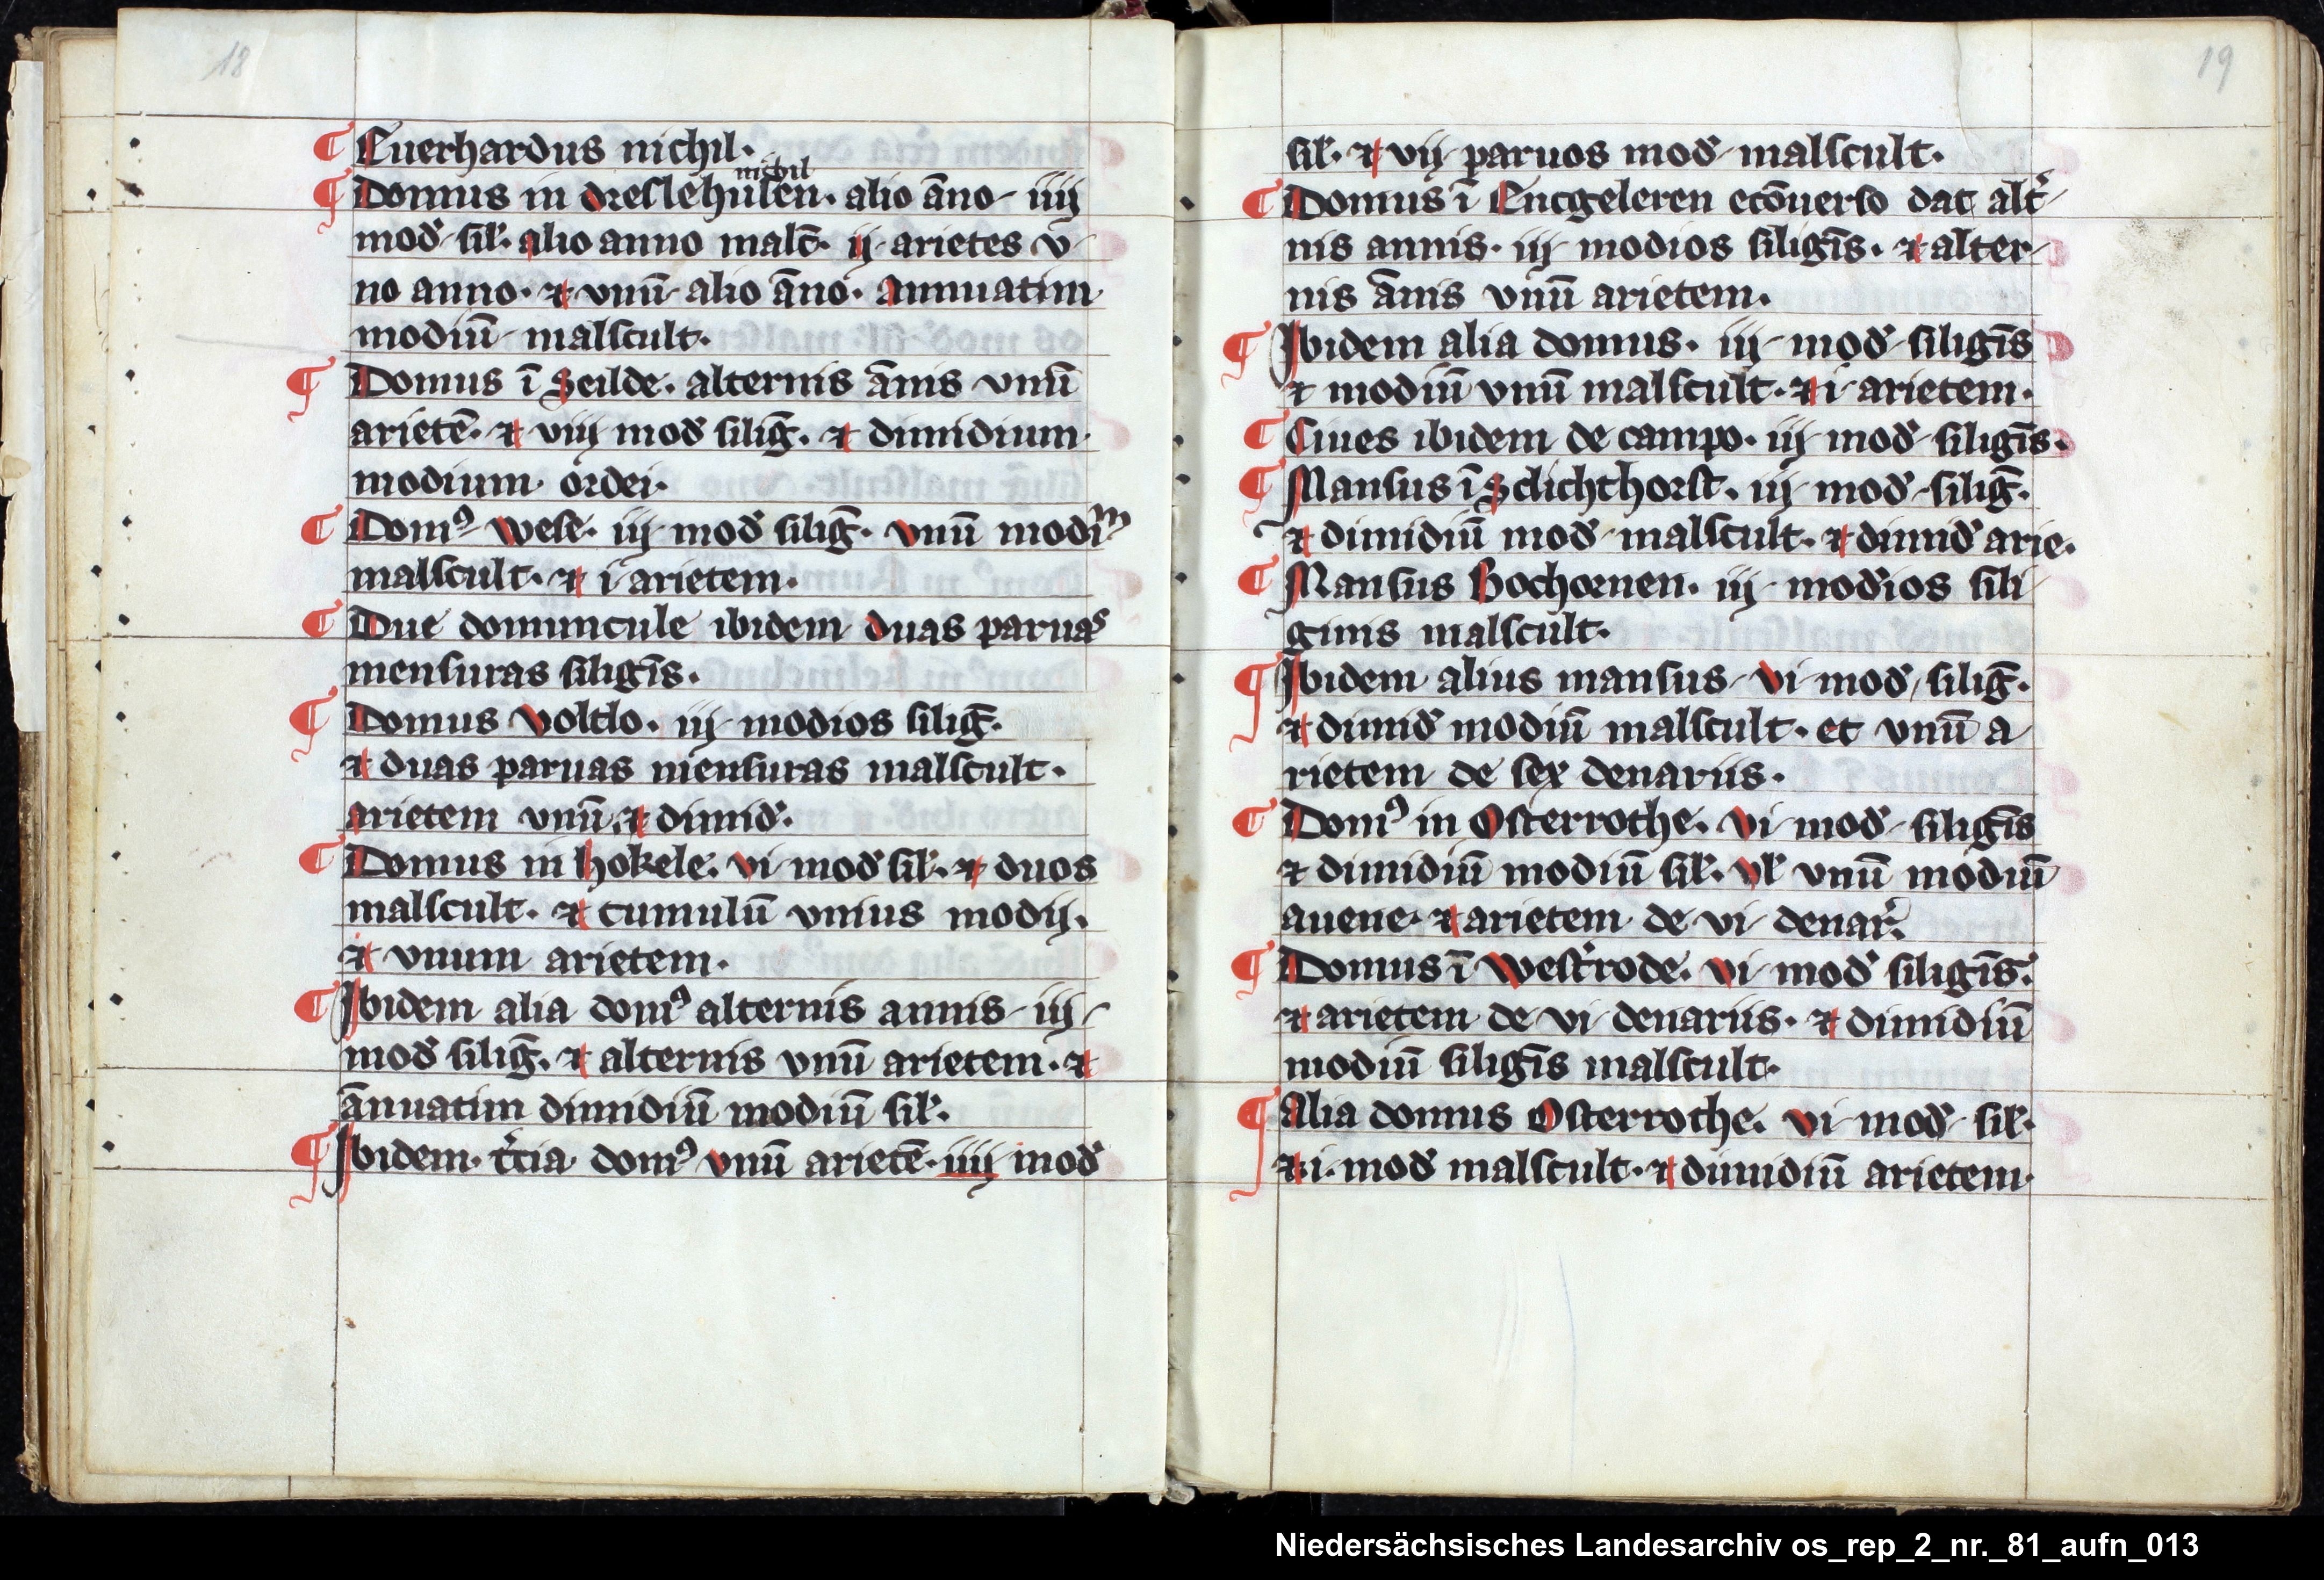 18
¶ Euerhardus nichil.
nichil
¶ Domus in dreslehusen. alio āno iiij
mod̛ sil̛. alio anno malc̄. ij arietes v
no anno. ⁊ vnū alio āno. Annuatim
modiū malscult.
¶ Domus ī Seilde. alternis ānis vnū
arietē. ⁊ viiij mod̛ siliḡ. ⁊ dimidium
modium ordei.
¶ Domꝰ Wese. iij mod̛ siliḡ. vnū modiᵐ
malscult. ⁊ i arietem.
¶ Due domuncule ibidem duas paruas
mensuras siligīs.
¶ Domus Voltlo. iij modios siliḡ.
⁊ duas paruas mensuras malscult.
arietem vnū ⁊ dimid̛.
¶ Domus in hokele. vi mod̛ sil̛. ⁊ duos
malscult. ⁊ cumulū vnius modij.
⁊ vnum arietem.
¶ Ibidem alia domꝰ alternis annis iij
mod̛ siliḡ. ⁊ alternis vnū arietem. ⁊
ānuatim dimidiū modiū sil̛.
¶ Ibidem t̛cia domꝰ vnū arietē. iiij mod̛
19
sil̛. ⁊ vij paruos mod̛ malscult.
¶ Domus ī Encgeleren ecōuerso dat alt̛
nis annis. iij modios siligīs. ⁊ alter
nis ānis vnū arietem.
¶ Ibidem alia domus. iij mod̛ siligīs
⁊ modiū vnū malscult. ⁊ i arietem.
¶ Ciues ibidem de campo. iij mod̛ siligīs.
¶ Mansus ī Sclichthorst. iij mod̛ siliḡ.
⁊ dimidiū mod̛ malscult. ⁊ dimid̛ arie.
¶ Mansus Bochornen. iij modios sili
ginis malscult.
¶ Ibidem alius mansus vi mod̛ siliḡ.
⁊ dimid̛ modiū malscult. et vnū a
rietem de sex denariis.
¶ Domꝰ in Osterrothe. vi mod̛ siligīs
⁊ dimidiū modiū sil̛. vl̛ vnū modiū
auene. ⁊ arietem de vi denar̛.
¶ Domus ī West̛rode. vi mod̛ siligīs.
⁊ arietem de vi denariis. ⁊ dimidiū
modiū siligīs malscult.
¶ Alia domus Osterrothe. vi mod̛ sil̛.
⁊ i. mod̛ malscult. ⁊ dimidiū arietem.
Niedersächsisches Landesarchiv os_rep_2_nr._81_aufn_013